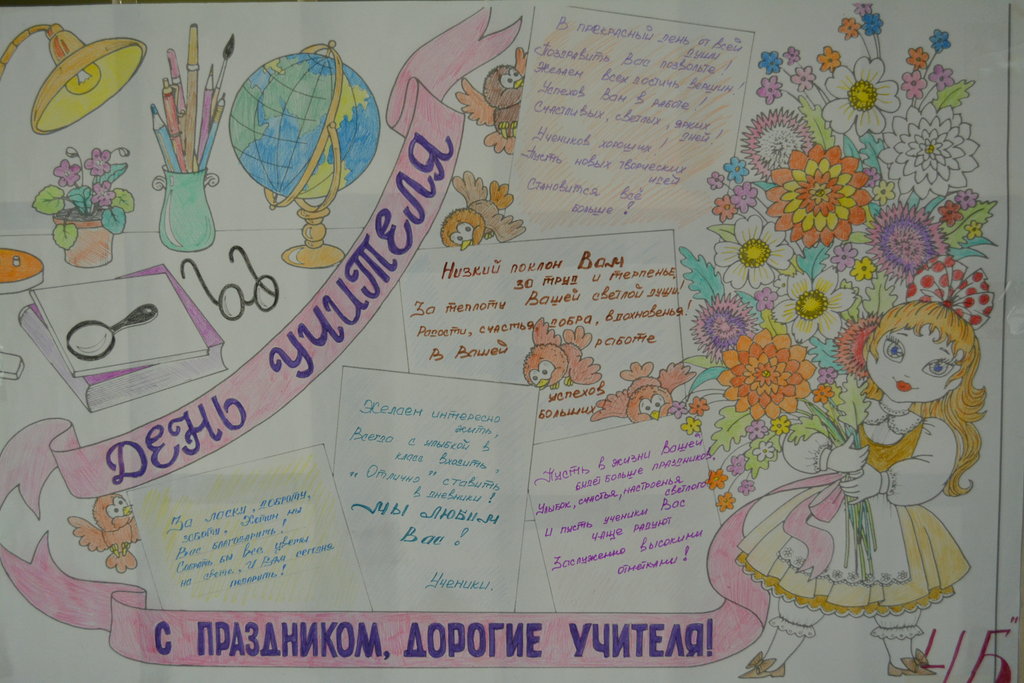 ДЕНЬ УЧИТЕЛЯ
В прекрасный день от всей
души
Поздравить Вас позвольте!
Желаем Всех достичь вершин,
Успехов Вам в работе!
Счастливых, светлых, ярких
дней!
Учеников хороших!
Пусть новых творческих
идей
Становится всё
больше!
Низкий поклон Вам
за труд и терпенье,
За теплоту Вашей светлой души
Радости, счастья, добра, вдохновенья!
В Вашей работе
успехов
больших
Желаем интересно
жить,
Всегда с улыбкой в
класс входить,
"Отлично" ставить
в дневники!
МЫ ЛЮБИМ
Вас!
Ученики.
Пусть в жизни Вашей
будет больше праздников,
Улыбок, счастья, настроенья
светлого
И пусть ученики Вас
чаще радуют
Заслуженно высокими
отметками!
За ласку, доброту,
заботу, Хотим мы
Вас благодарить!
Собрать бы все цветы
на свете, И Вам сегодня
подарить!
С ПРАЗДНИКОМ, ДОРОГИЕ УЧИТЕЛЯ!
4"Б"